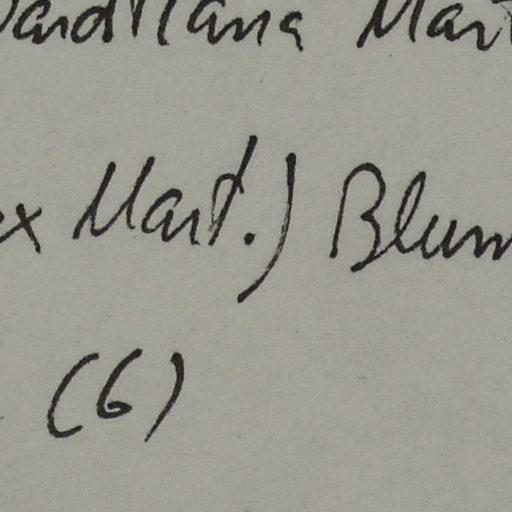 Mart
ex Mart.) Blum
(6)